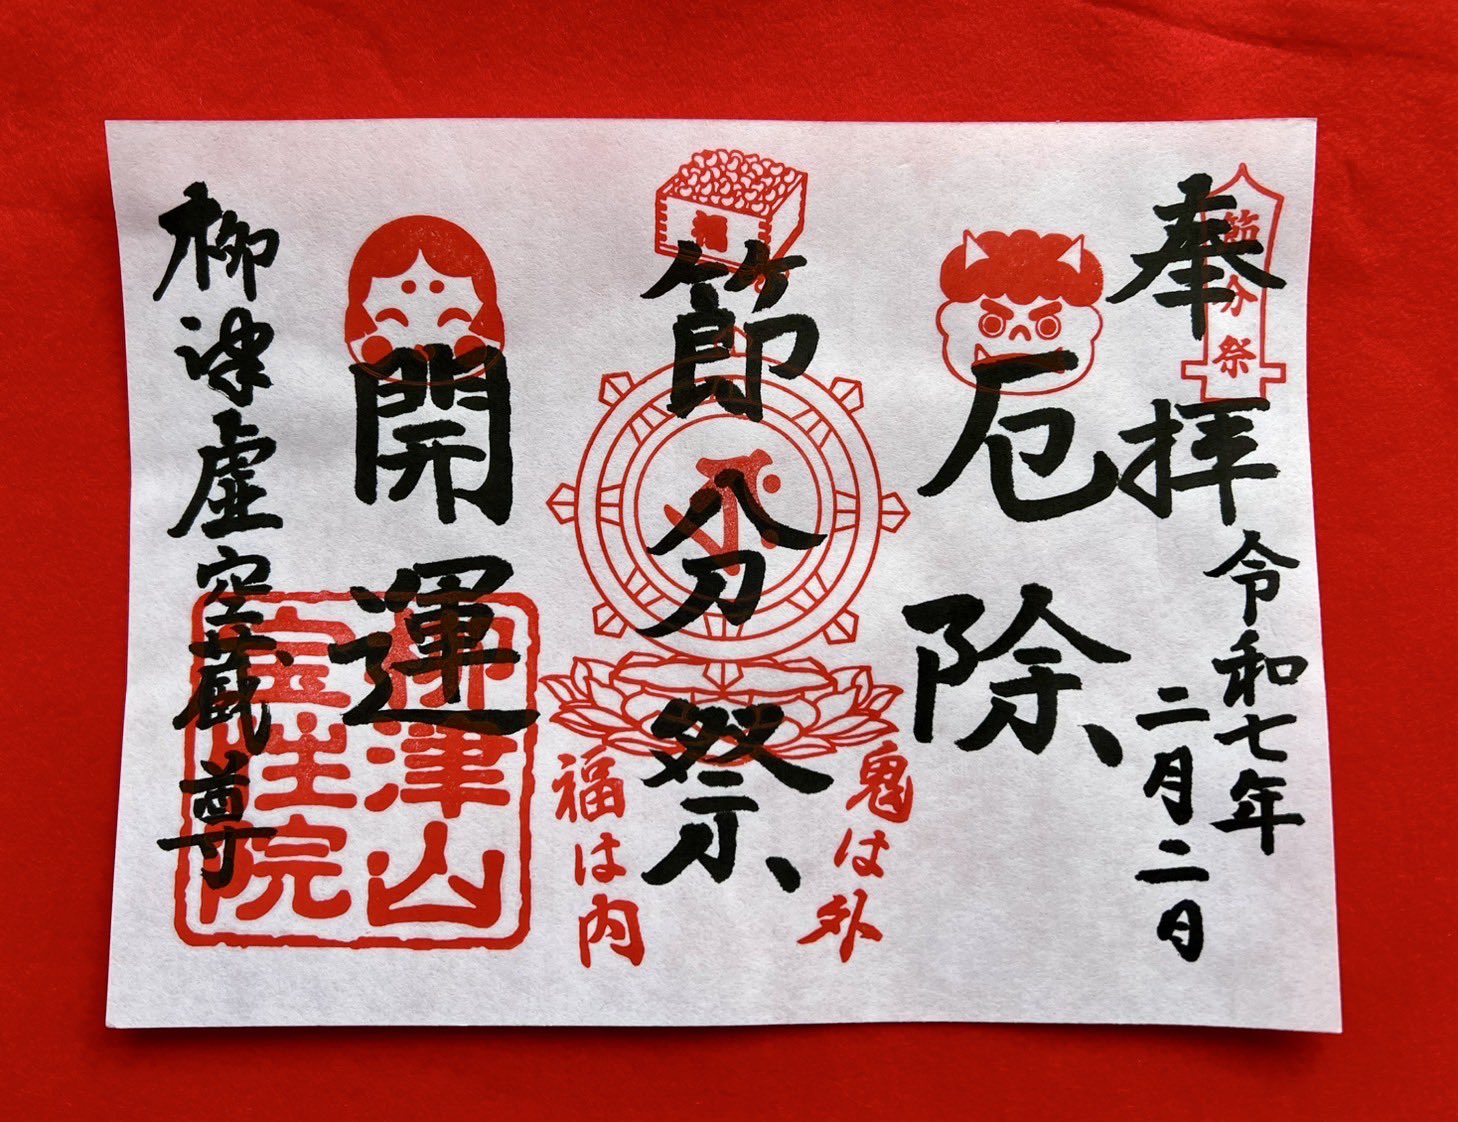 奉拝
節分祭
令和七年
二月二日
厄除
福
節分祭
鬼は外
福は内
開運
柳津虚空蔵尊
柳津山
宝性院